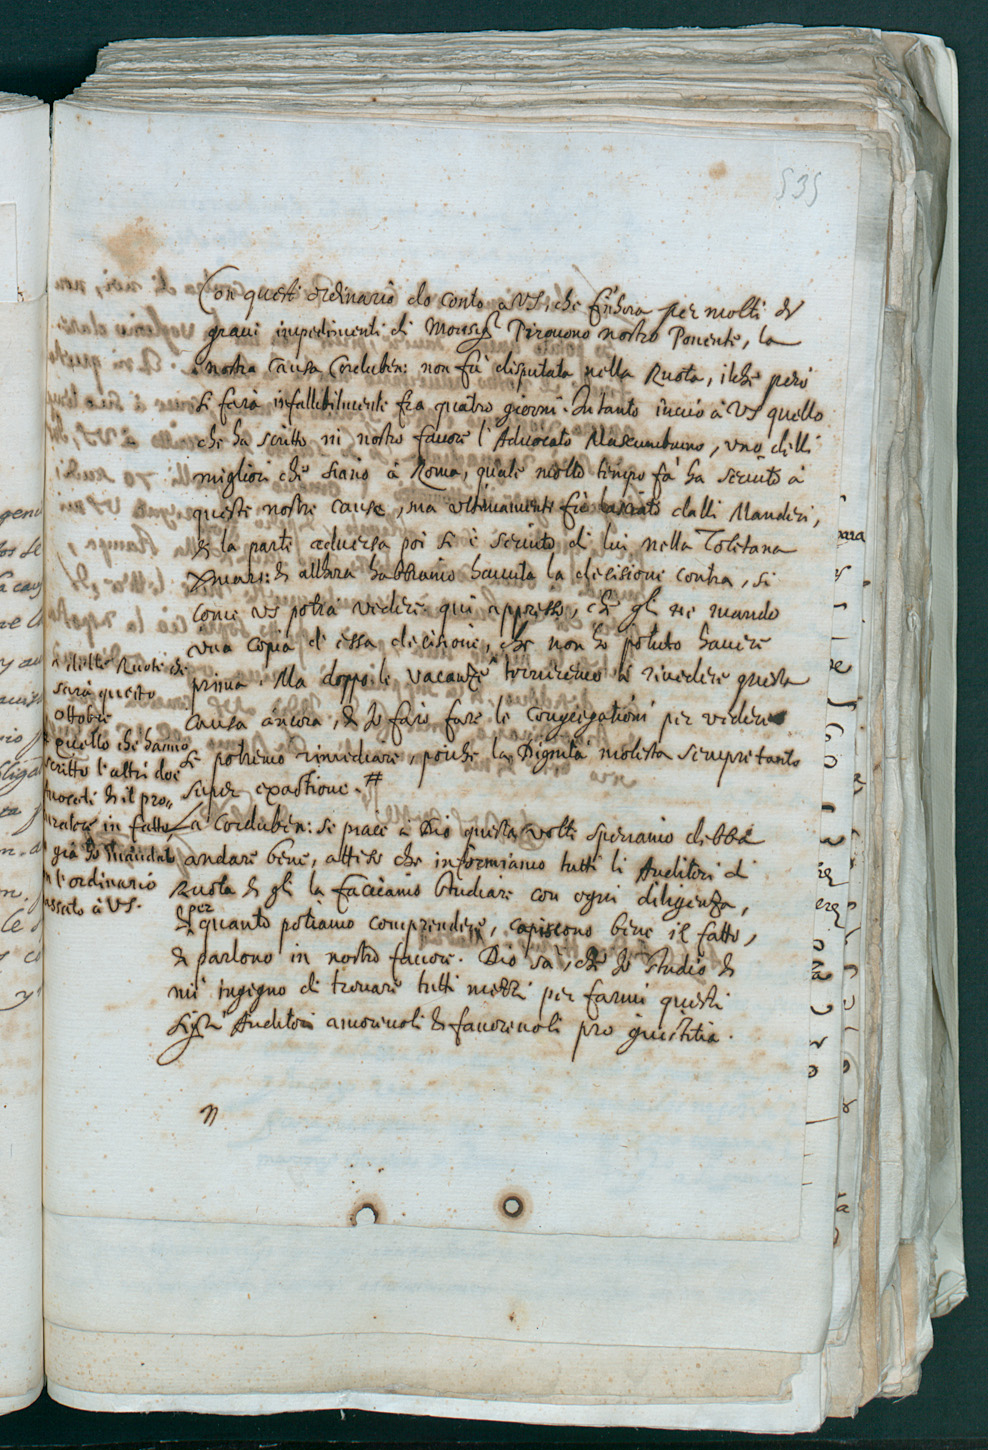 535
Con questo ordinario do conto a VS, che finhora per molti &
gravi impedimenti di Monsigr Pirovono nostro Ponente, la
nostra causa Corduben: non fù disputata nella Ruota, ilche però
si farà infallibilmente fra quatro giorni. Intanto invio à VS quello
che ha scritto in nostro favore l'Advocato Mascambruno, uno delli
migliori che siano à Roma, quale molto tempo fà ha servito à
queste nostre cause, ma ultimamente fù lasciato dalli Manderi,
& la parte adversa poi si è servito di lui nella Toletana
Xmar: & allhora habbiamo havuta la decisione contra, si
come VS potrà vedere qui appresso, che gli ne mando
una copia d'essa decisione, che non ho potuto havere
prima. Ma doppo le vacanze torneremo à rivedere questa
causa ancora, & Io faro fare le Congregationi per vedere
se potremo rimediare, poiche la Dignità molesta sempre tanto
super exactione. #
La Corduben: se piace à Dio questa volta speriamo debba
andare bene, atteso che informiamo tutti li Auditori di
Ruota & gli la facciamo studiare con ogni diligenza,
& per quanto potiamo comprendere, capiscono bene il fatto,
& parlono in nostro favore. Dio sà, che Io studio &
mi ingegno di trovare tutti mezzi per farmi questi
Sigri Auditori amorevoli & favorevoli pro giustitia.
delle Ruote che
serà questo
Ottobre
quello che hanno
scritto l'altri doi
Avocati & il pro„
curatore in fatto
già ho mandat
l'ordinario
passato à VS.